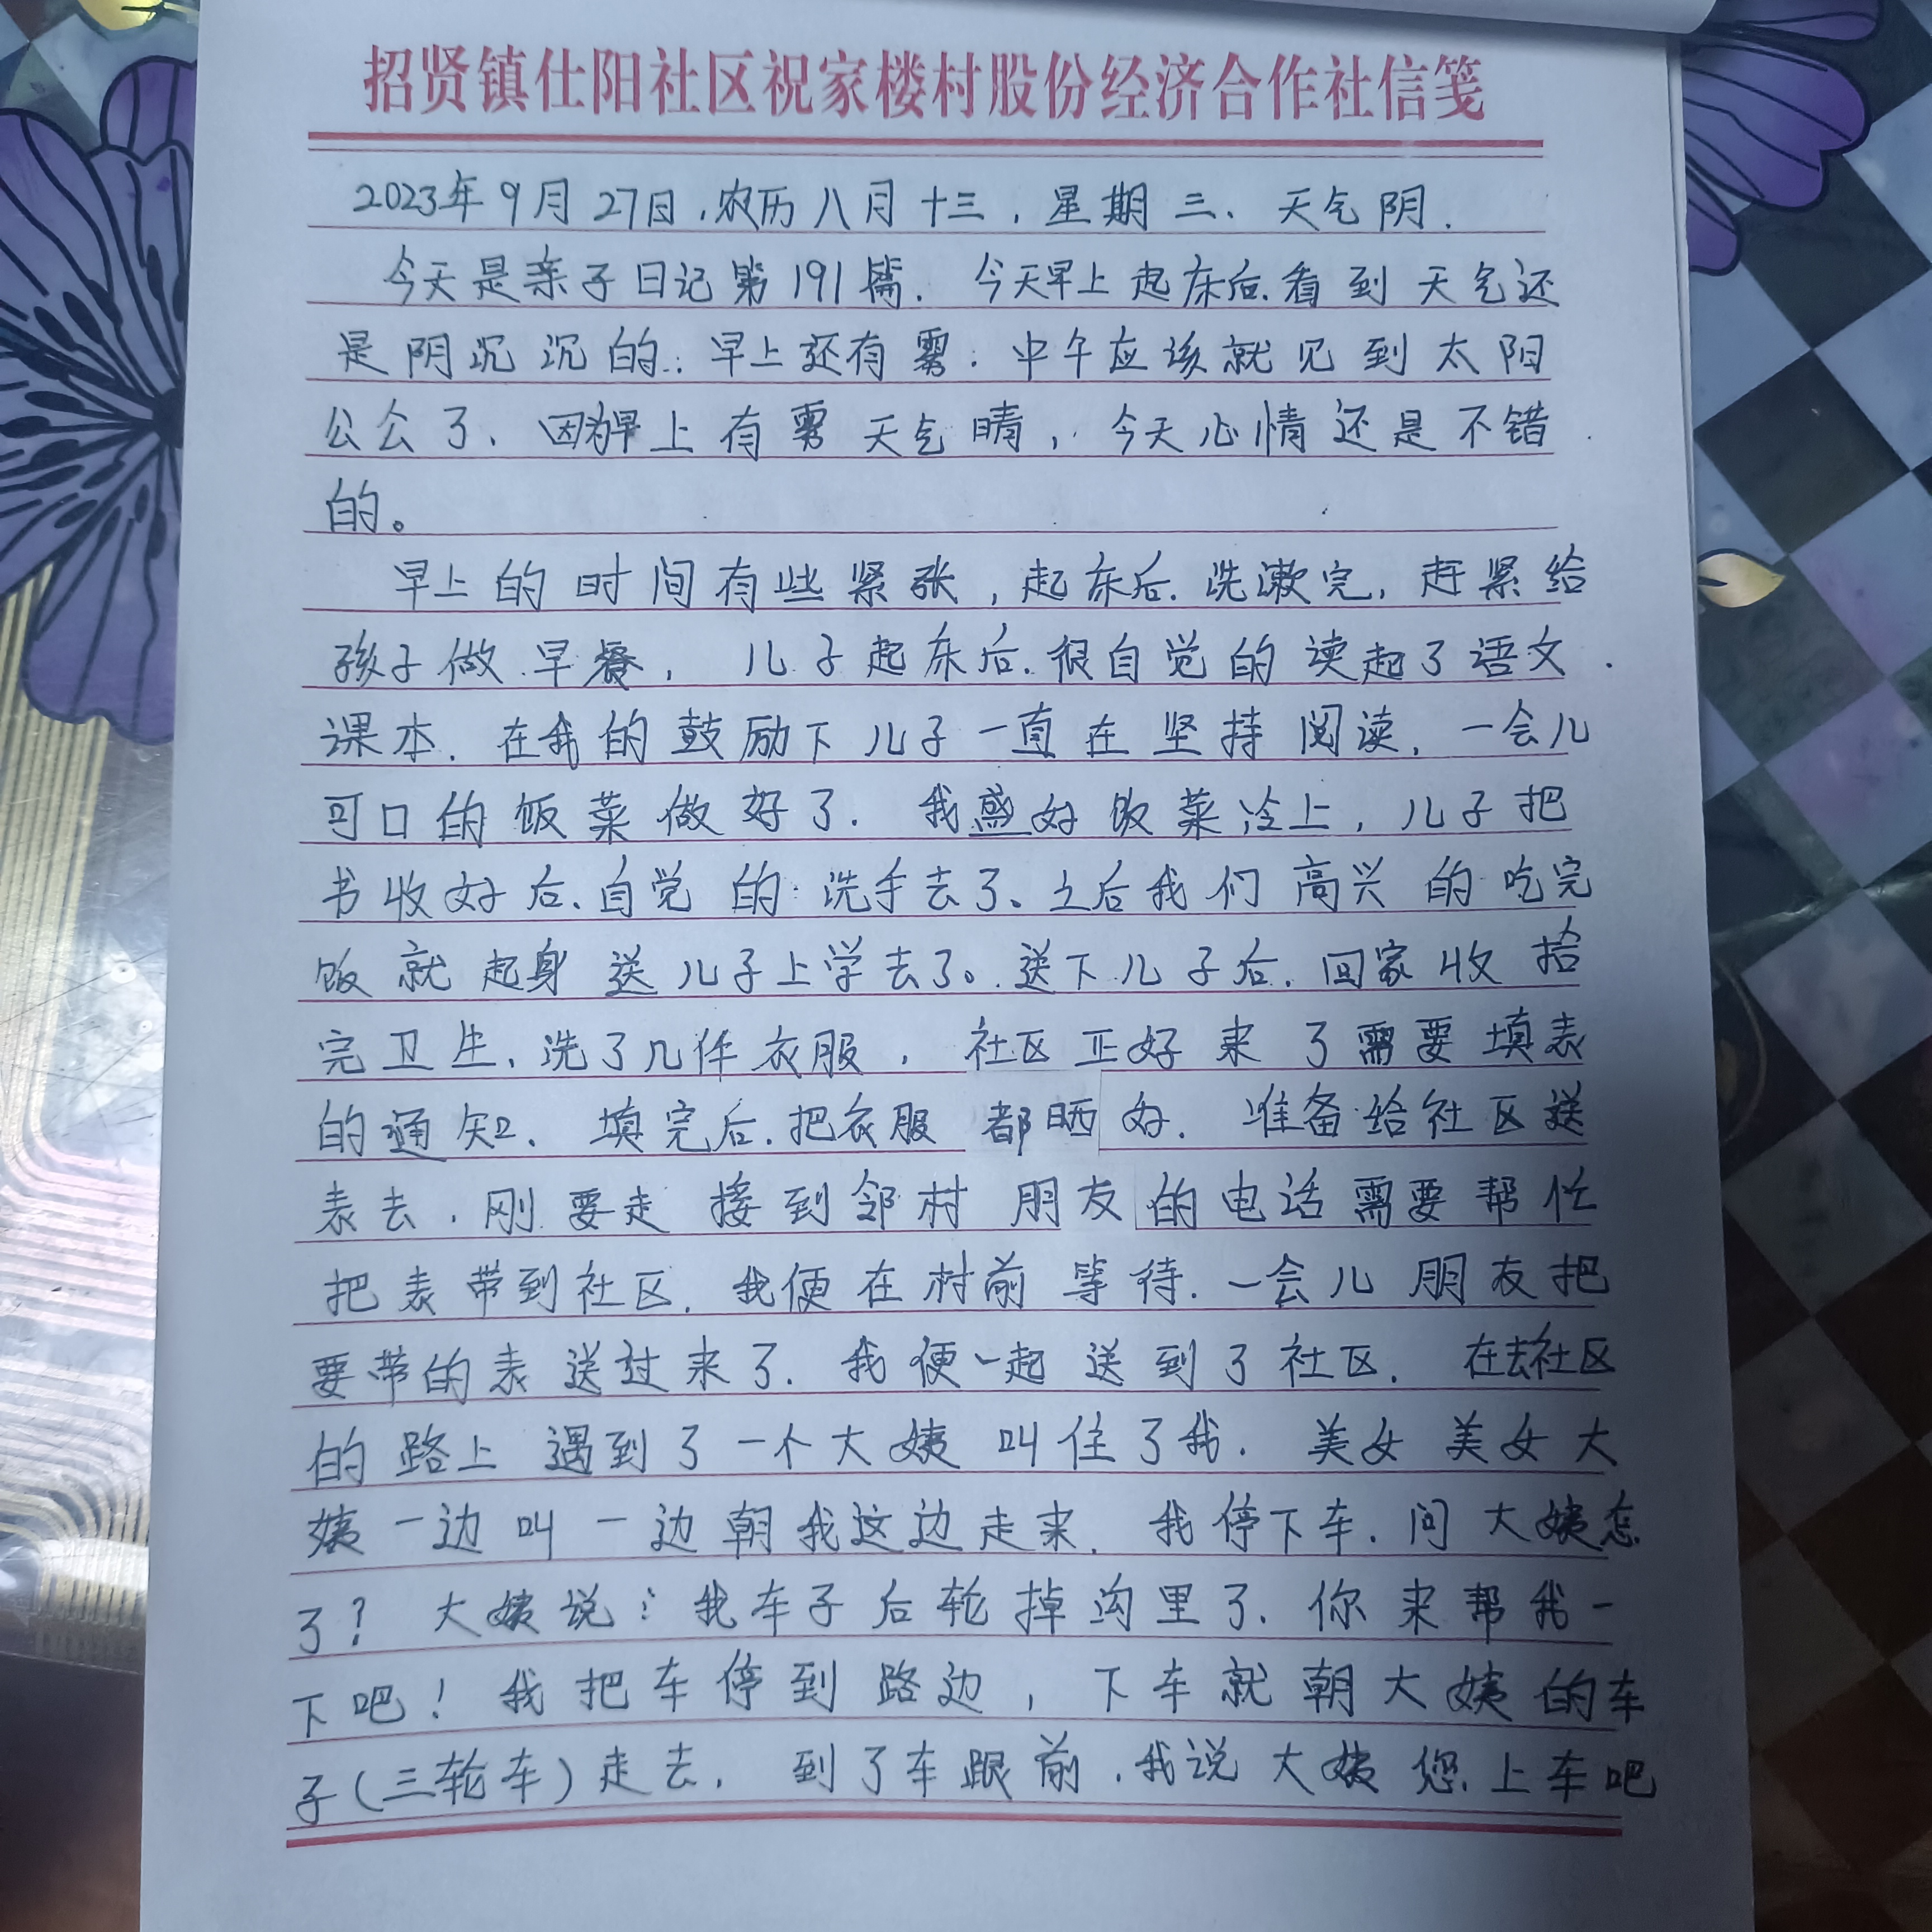 招贤镇仕阳社区祝家楼村股份经济合作社信笺
2023年9月27日,农历八月十三,星期三、天气阴.
今天是亲子日记第191篇.今天早上起床后.看到天气还
是阴沉沉的.:早上还有雾.中午应该就见到太阳
公公了、因为早上有雾天气晴,今天心情还是不错
的。
早上的时间有些紧张,起床后.洗漱完,赶紧给
孩子做早餐,儿子起床后.很自觉的读起了语文
课本.在我的鼓励下儿子一直在坚持阅读.一会儿
可口的饭菜做好了.我盛好饭菜冷上,儿子把
书收好后、自觉的洗手去了、之后我们高兴的吃完
饭就起身送儿子上学去了。送下儿子后.回家收拾
完卫生,洗了几件衣服,社区正好来了需要填表
的通知、填完后.把衣服都晒好.准备给社区送
表去.刚要走接到邻村朋友的电话需要帮忙
把表带到社区.我便在村前等待.一会儿朋友把
要带的表送过来了.我便一起送到了社区.在去社区
的路上遇到了一个大姨叫住了我.美女美女大
姨一边叫一边朝我这边走来.我停下车.问大姨怎
了?大姨说:我车子后轮掉沟里了.你来帮我一
下吧!我把车停到路边,下车就朝大姨的车
子(三轮车)走去.到了车跟前.我说大姨您上车吧